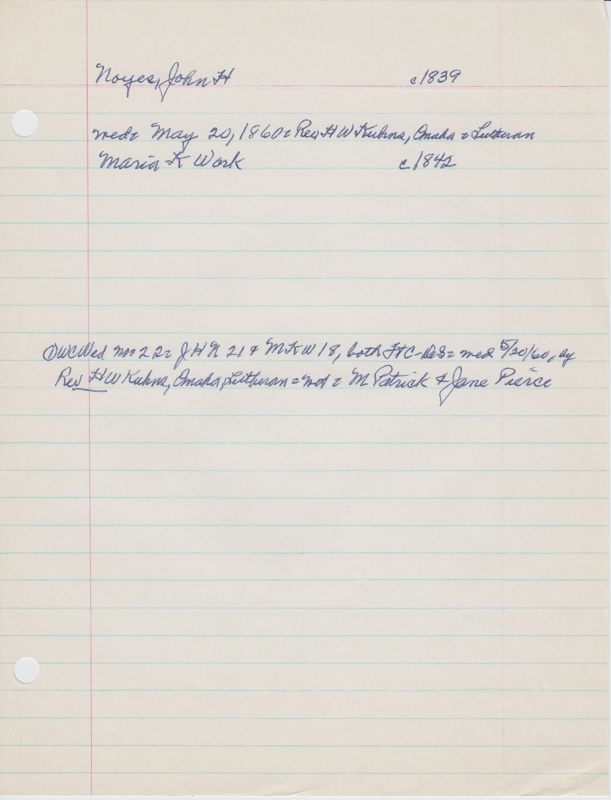 Noyes, John H c1839
wed= May 20, 1860= Rev H W Kuhns, Omaha = Lutheran
Maria K Work c1842
DWCWed no 22= J H N 21 & M K W 18, both = wed 5/20/60, by
Rev H W Kuhns, Omaha, Lutheran = = M Patrick & Jane Pierce